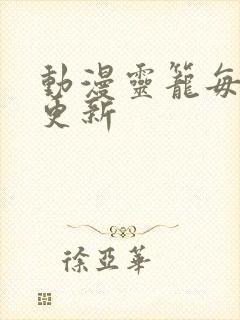 動漫靈籠每
更新
徐亞華